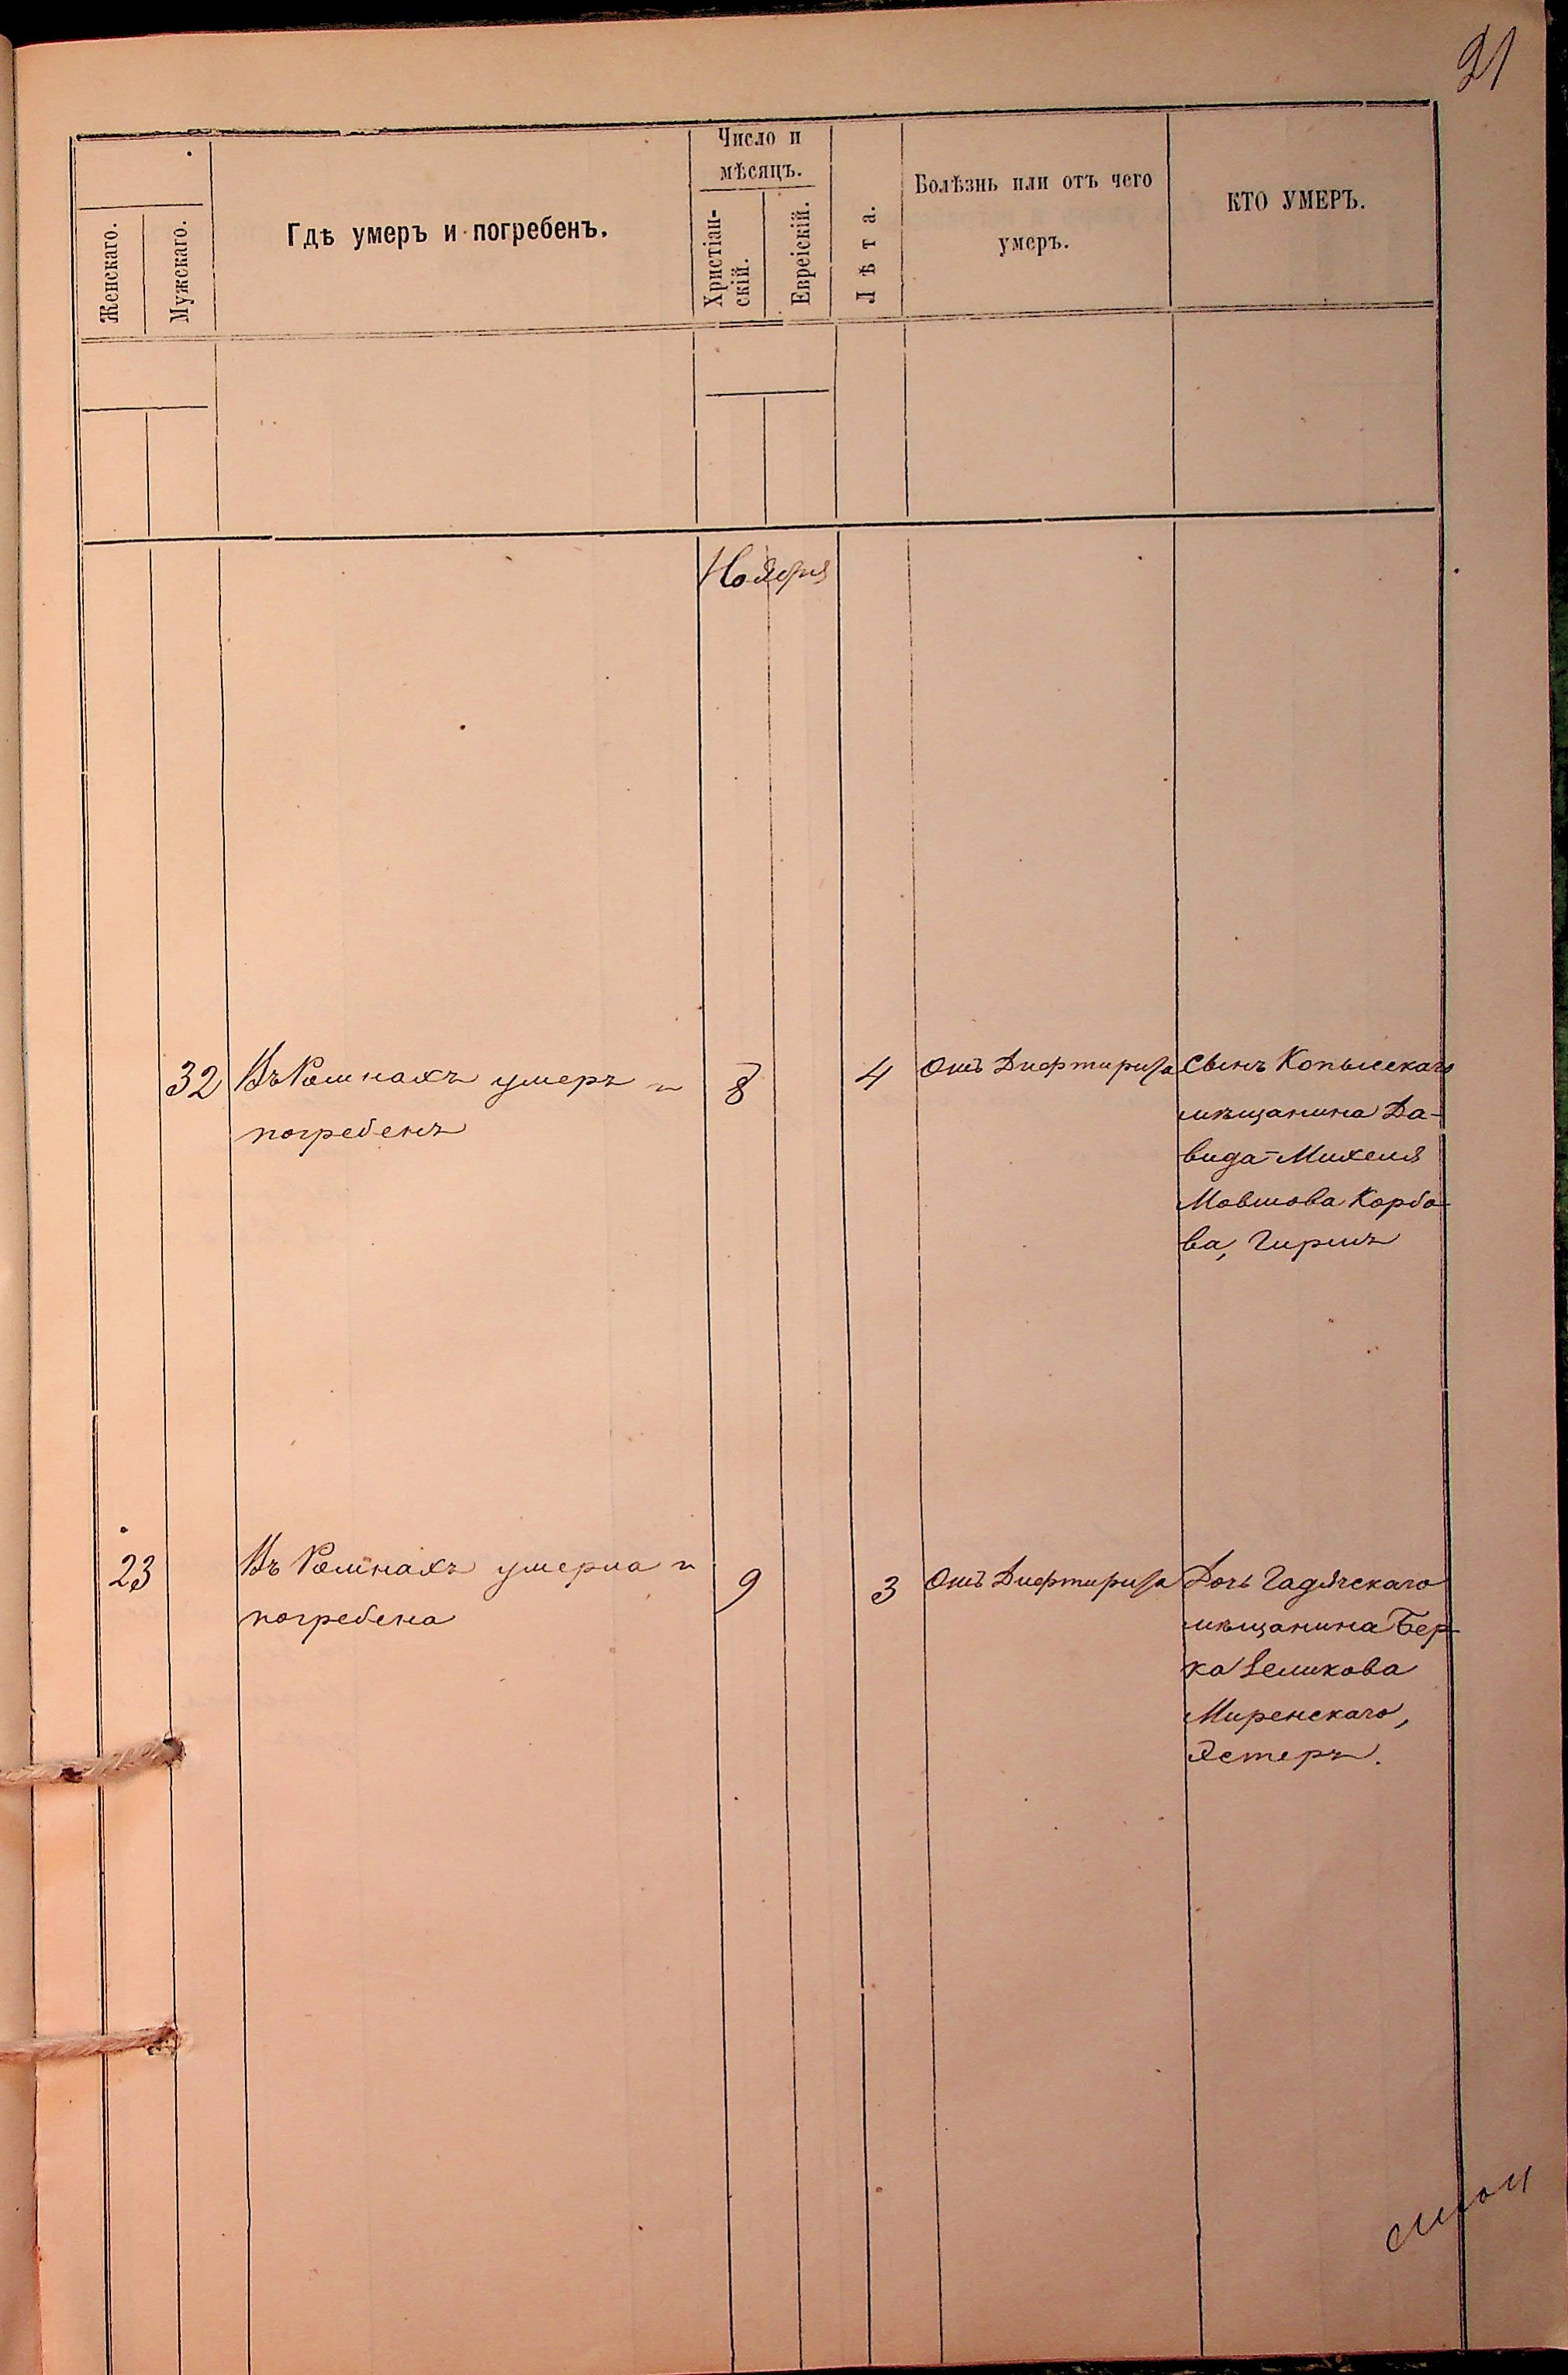 21
Женскаго.
Мужскаго.
Гдѣ умеръ и погребенъ.
Число и
мѣсяцъ.
Христіан-
скій.
Евреіскій.
Лѣта.
Болѣзнь или отъ чего
умеръ.
КТО УМЕРЪ.
Ноября
32
Въ Ромнахъ умеръ и
погребенъ
8
4
Отъ Дифтирита
Сынъ Копысскаго
мѣщанина Да-
вида-Михеля
Мовшова Корбо-
ва, Гиршъ
23
Въ Ромнахъ умерла и
погребена
9
3
Отъ Дифтирита
Дочь Гадячскаго
мѣщанина Бер-
ка Зеликова
Миренскаго,
Эстеръ.